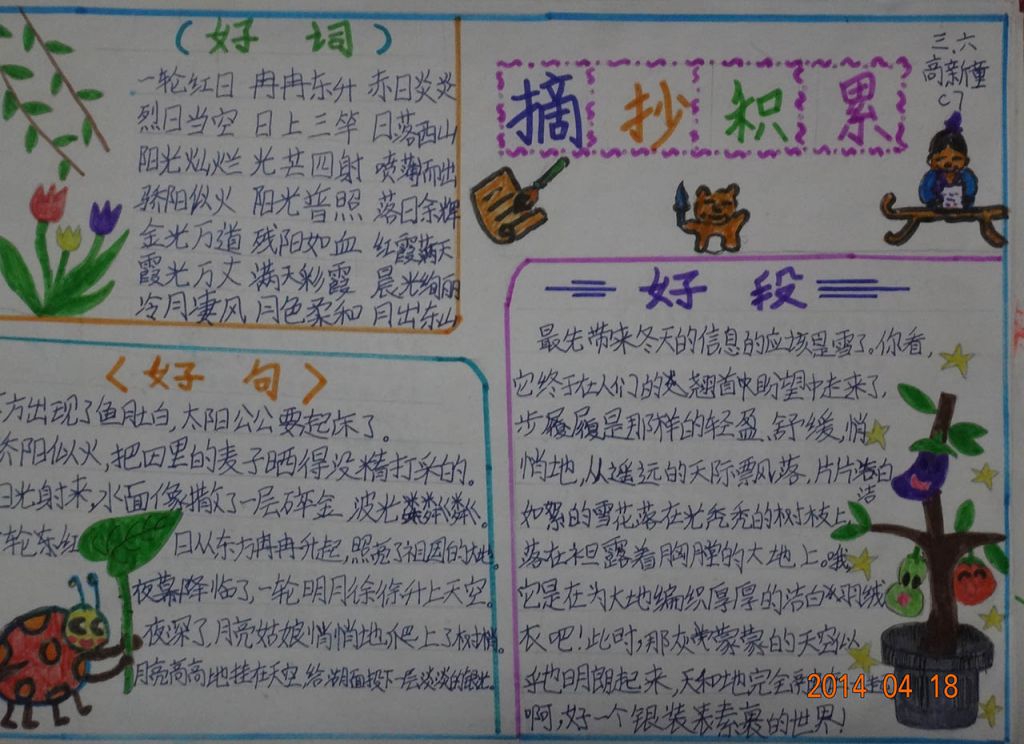 (好词)
一轮红日 冉冉东升 赤日炎炎
烈日当空 日上三竿 日落西山
阳光灿烂 光芒四射 喷薄而出
骄阳似火 阳光普照 落日余辉
金光万道 残阳如血 红霞满天
霞光万丈 满天彩霞 晨光绚丽
冷月凄风 月色柔和 月出东山
摘抄积累
三.六
高新重
C7
〈好句〉
方出现了鱼肚白,太阳公公要起床了。
阳似火,把四里的麦子晒得没精打采的。
日光射来,水面像撒了一层碎金 波光粼粼。
轮东红
日从东方冉冉升起,照亮了祖国的大地
夜幕降临了一轮明月徐徐升上天空。
夜深了月亮姑娘悄悄地爬上了树梢。
月亮高高地挂在天空,给湖面投下一层淡淡的银
好段
最先带来冬天的信息的应该是雪了。你看,
它终于在人们的翘首中盼望中走来了,
步履是那样的轻盈、舒缓,悄
悄地,从遥远的天际飘风落,片片洁白
洁
如絮的雪花落在光秃秃的树枝上
落在袒露着胸膛的大地上。哦
它是在为大地编织厚厚的洁白羽绒
衣吧!此时,那灰蒙蒙的天空似
乎也明朗起来,天和地完全
啊,好一个银装素裹的世界!
2014 04 18